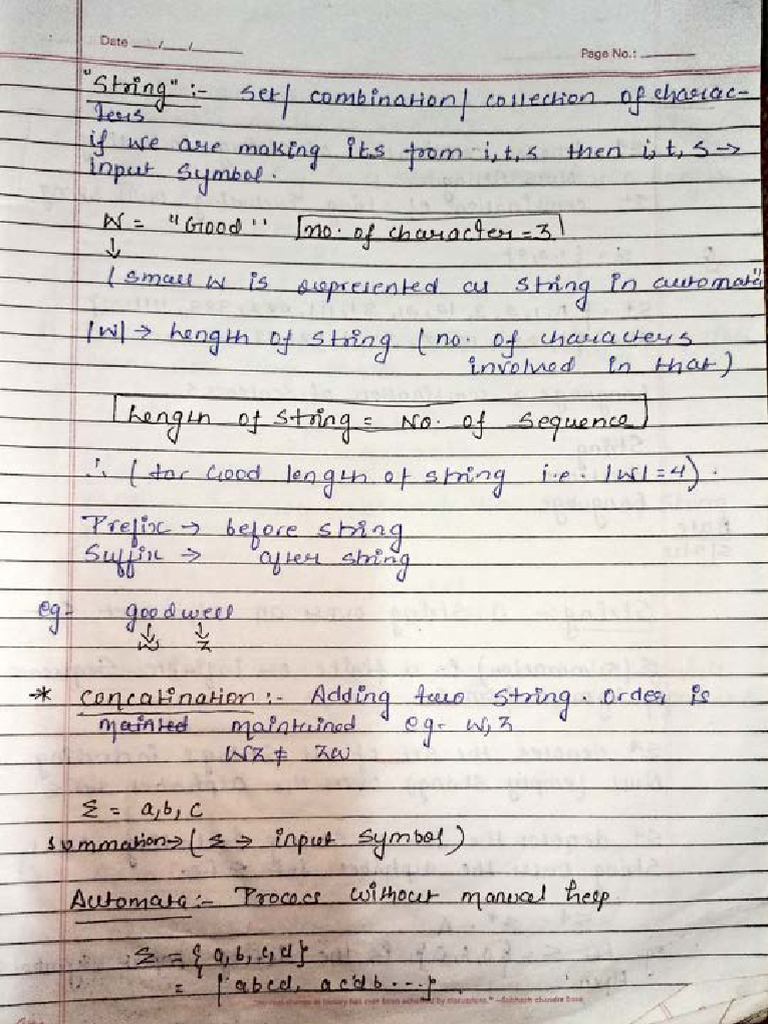 Date __/__/____
Page No.: ____
"String" :- Set/ combination/ collection of charac-
ters
if we are making its from i,t,s then i,t,s →
input symbol.
W = "Good" no. of character = 3
↓
( small w is represented as string in automata"
|W| → Length of string ( no. of characters
involved in that )
Length of String = No. of sequence
∴ ( for Good length of string i.e. |W| = 4 ) .
Prefix → before string
Suffix → after string
eg= goodwell
↓ ↓
w z
* Concatination :- Adding two String. Order is
mainted maintained eg- w, z
WZ ≠ ZW
Σ = a, b, c
summation → ( Σ → input symbol )
Automata :- Procces without manual help
Σ = { a, b, c, d }
= { abcd, acdb ... }